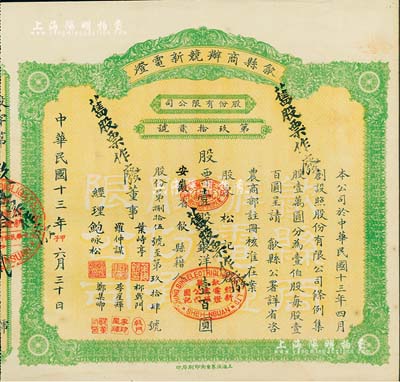 上海阳明拍卖
歙縣商辦競新電燈
股份有限公司
第玖拾貳號
舊股票作廢
舊股票作廢
舊股票作廢
本公司於中華民國十三年四月
創設照股份有限公司條例集
股壹萬圓分為壹伯股每股壹
百圓呈請歙縣公署詳省咨
農商部註冊核准在案
股東 松記
股票壹股計銀洋壹百圓
安徽省歙縣籍
股份第捌拾伍號至第玖拾肆號
董事
葉峙亭
柳戟門
羅仲謀
李星輝
經理
鮑咏松
鄭集卿
中華民國十三年 六月三十日